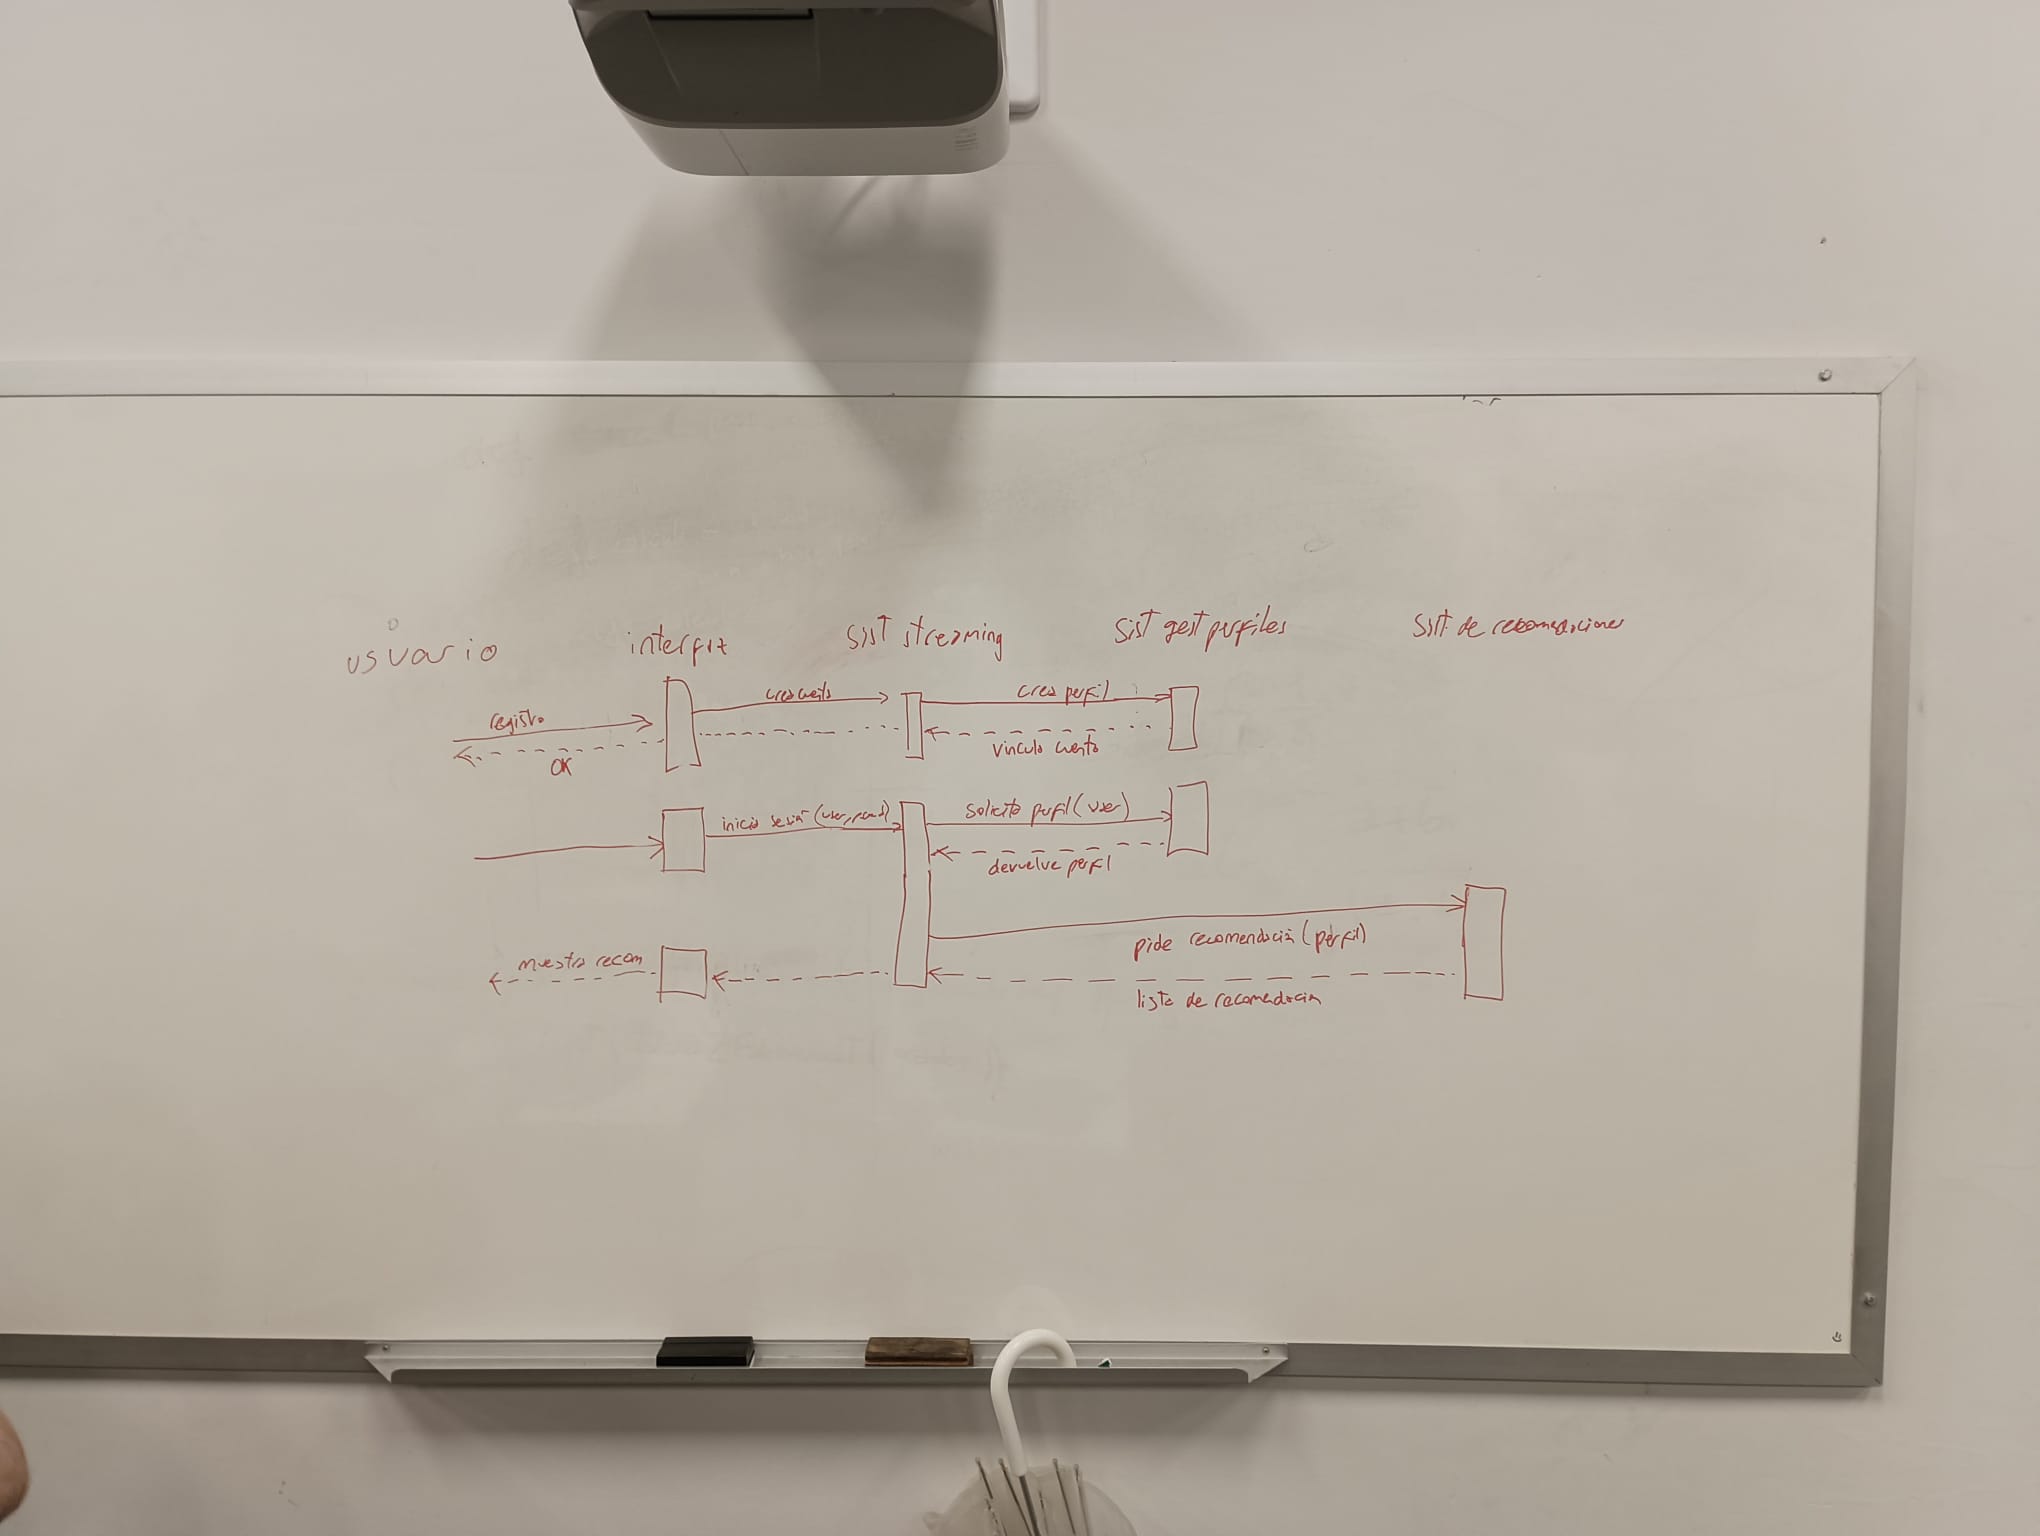 usuario
interfaz
Sist streaming
Sist gest perfiles
Sist de recomendaciones
registro
crea cuenta
crea perfil
OK
vincula cuenta
inicia sesión (user, passwd)
solicita perfil (user)
devuelve perfil
pide recomendación (perfil)
muestra recom
lista de recomendación